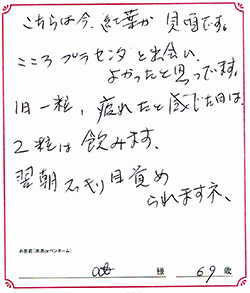 こちらは今、紅葉が見頃です。
こころプラセンタと出会い、
よかったと思ってます。
1日一粒、疲れたと感じた日は、
2粒は飲みます、
翌朝スッキリ目覚め
られますネ、
お名前(表名orペンネーム)
様 69歳